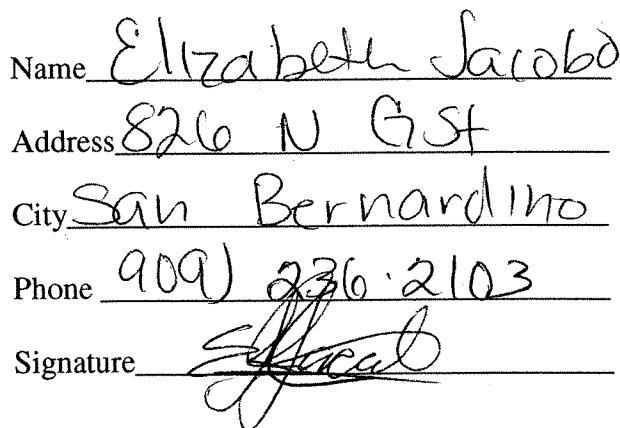 Name Elizabeth Jacobo
Address 826 N G St
City San Bernardino
Phone 909) 236-2103
Signature